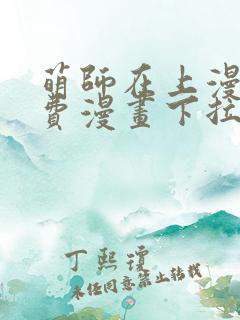 萌師在上漫
費漫畫下拉
丁熙瓊
未经同意禁止转载